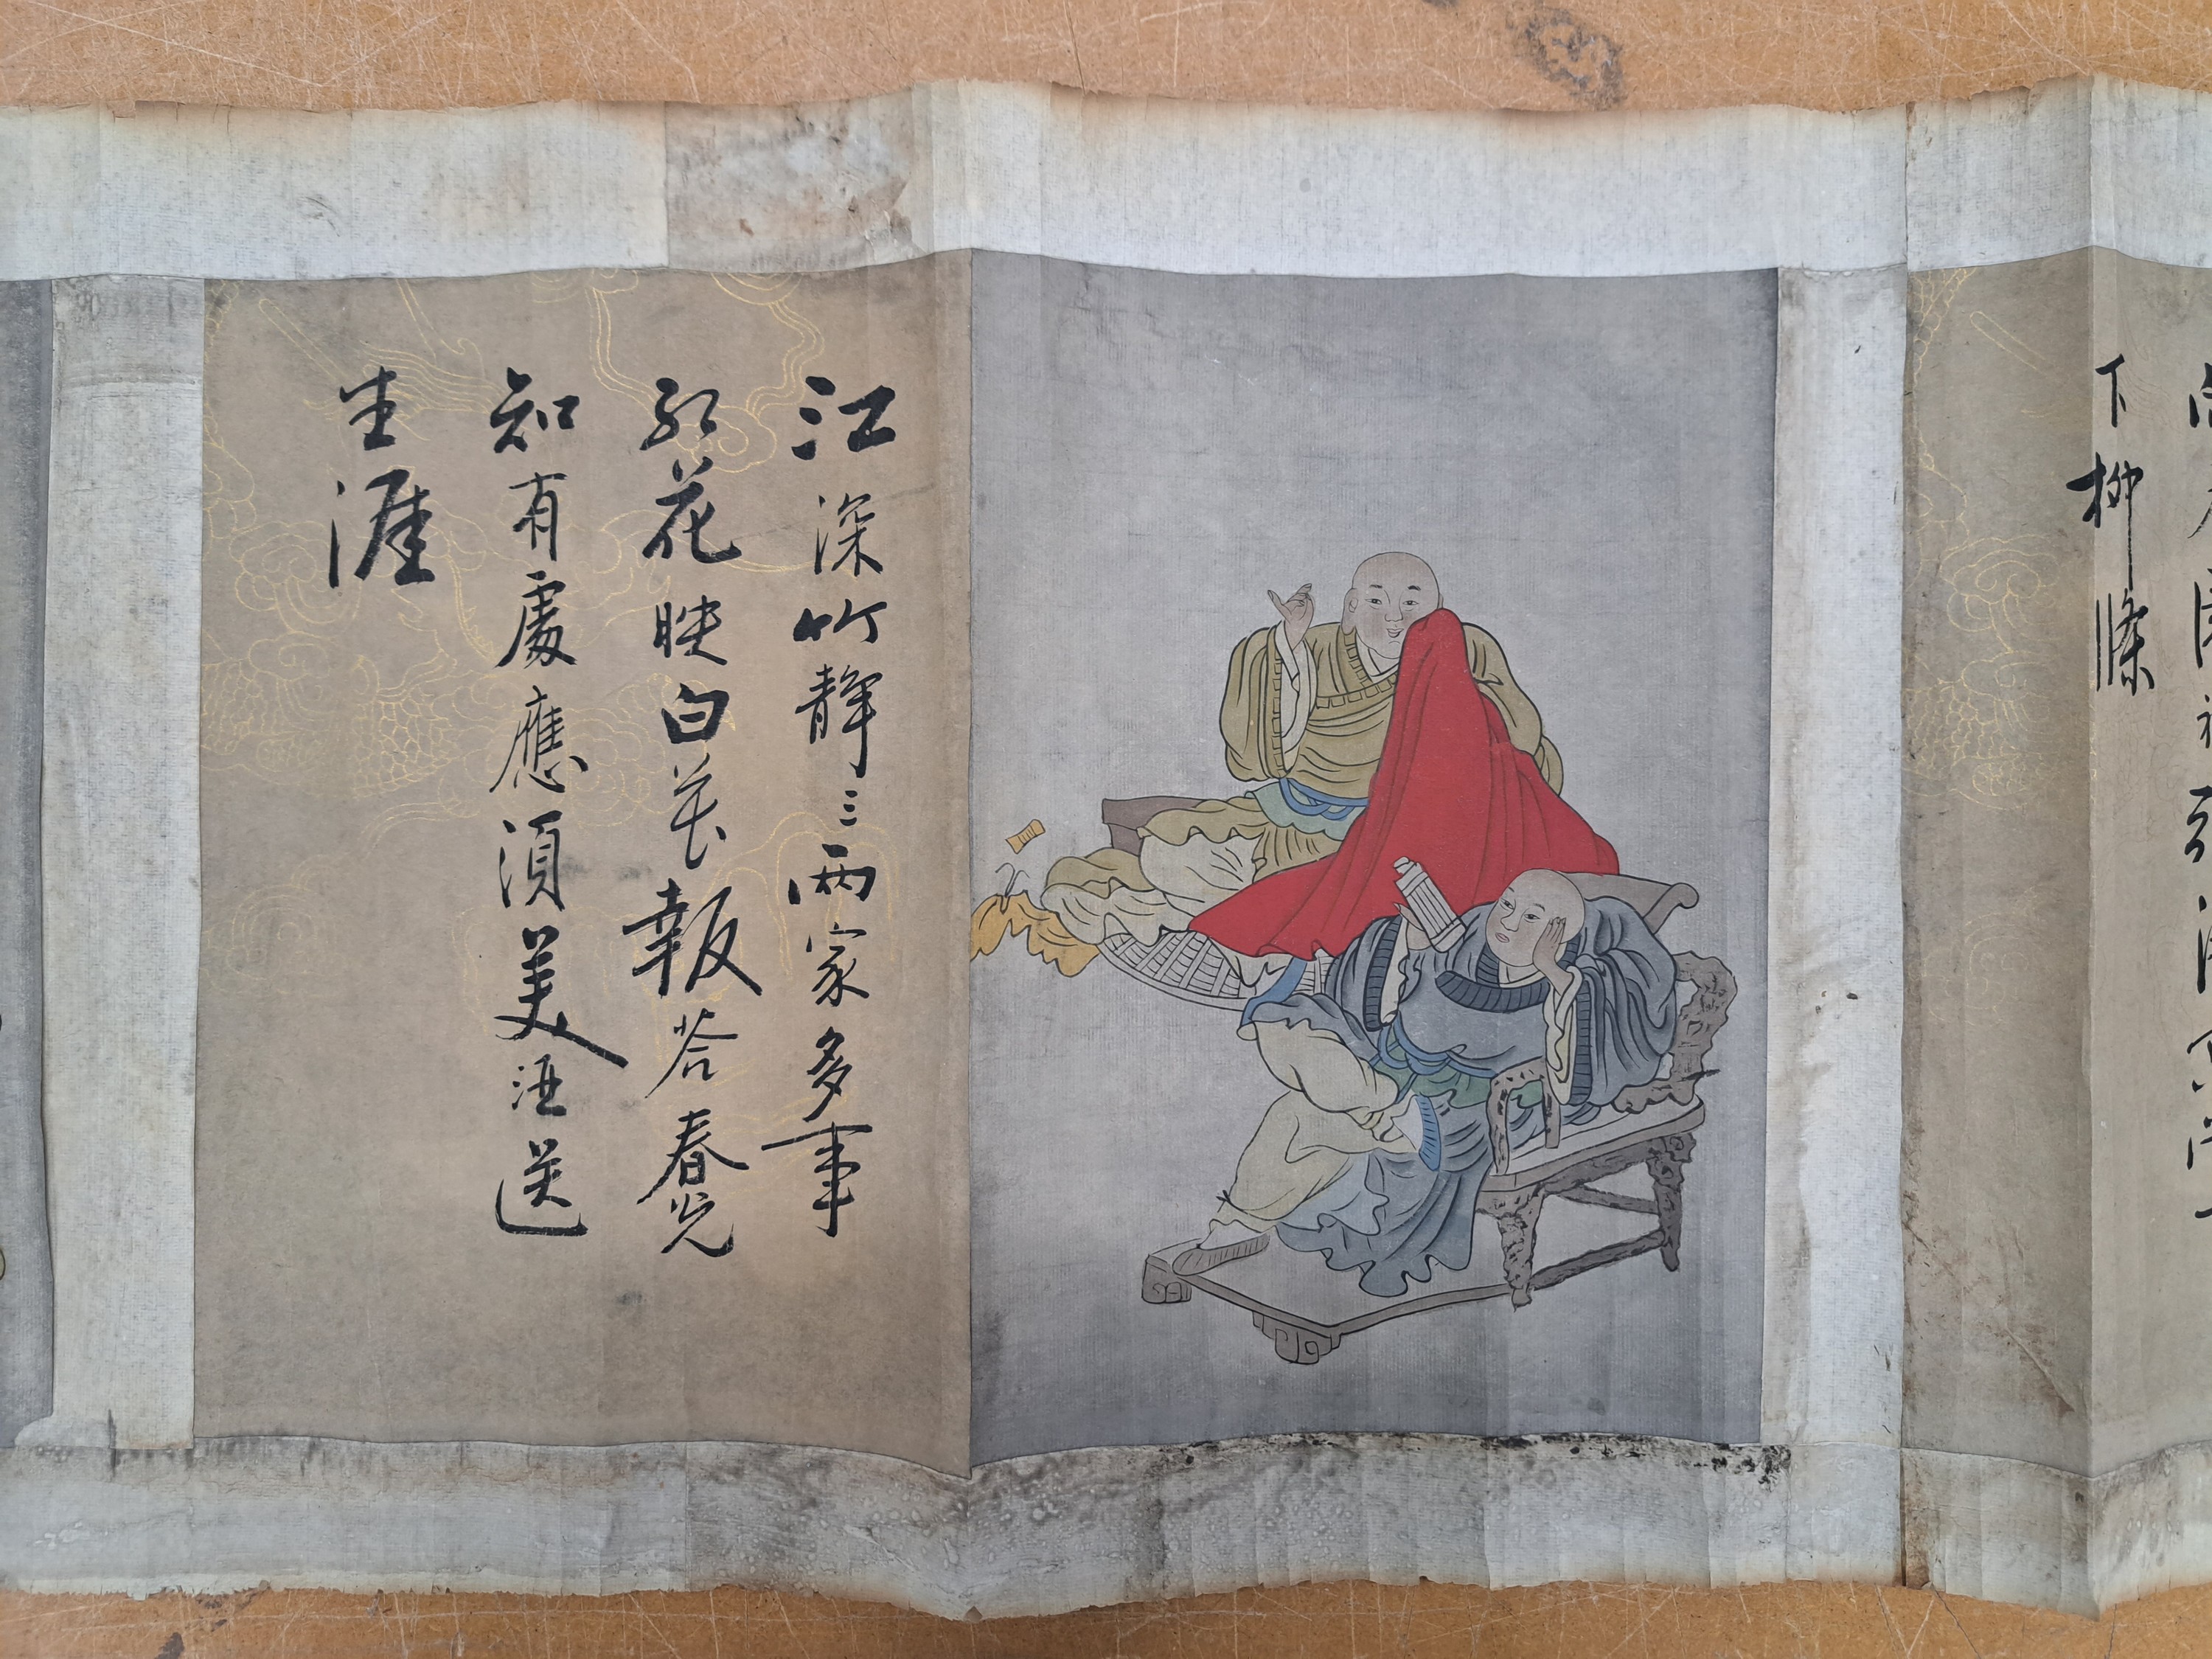 下柳條
江深竹靜三兩家多事
紅花映白花報荅春光
知有處應須美酒送
生涯